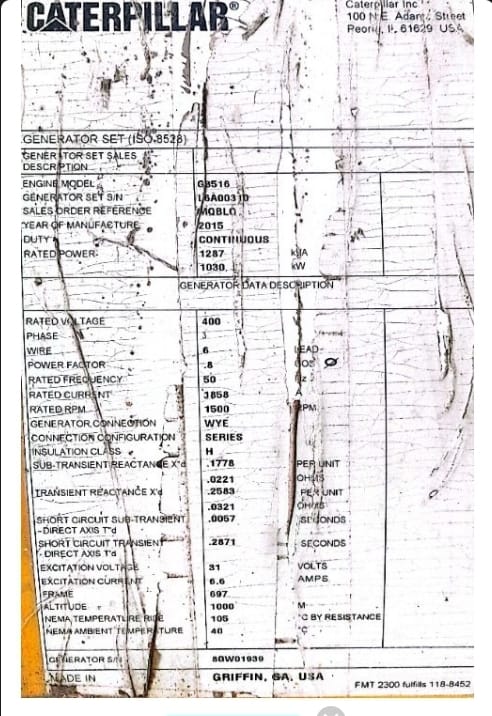 CATERPILLAR®
Caterpillar Inc
100 N E Adams Street
Peoria, IL 61629 USA
GENERATOR SET (ISO 8528)
GENERATOR SET SALES
DESCRIPTION
ENGINE MODEL G3516
GENERATOR SET S/N
SALES ORDER REFERENCE MQBLG
YEAR OF MANUFACTURE 2015
DUTY CONTINUOUS
RATED POWER 1287 kVA
1030. kW
GENERATOR DATA DESCRIPTION
RATED VOLTAGE 400
PHASE 3
WIRE 6 LEAD
POWER FACTOR .8 COS Ø
RATED FREQUENCY 50 Hz
RATED CURRENT 1858 A
RATED RPM 1500 RPM
GENERATOR CONNECTION WYE
CONNECTION CONFIGURATION SERIES
INSULATION CLASS H
SUB-TRANSIENT REACTANCE X"d .1778 PER UNIT
.0221 OHMS
TRANSIENT REACTANCE X'd .2583 PER UNIT
.0321 OHMS
SHORT CIRCUIT SUB-TRANSIENT .0057 SECONDS
- DIRECT AXIS T"d
SHORT CIRCUIT TRANSIENT .2871 SECONDS
- DIRECT AXIS T'd
EXCITATION VOLTAGE 31 VOLTS
EXCITATION CURRENT 6.6 AMPS
FRAME 697
ALTITUDE 1000 M
NEMA TEMPERATURE RISE 105 °C BY RESISTANCE
NEMA AMBIENT TEMPERATURE 40 °C
GENERATOR S/N 8GW01939
MADE IN GRIFFIN, GA, USA
FMT 2300 fulfills 118-8452